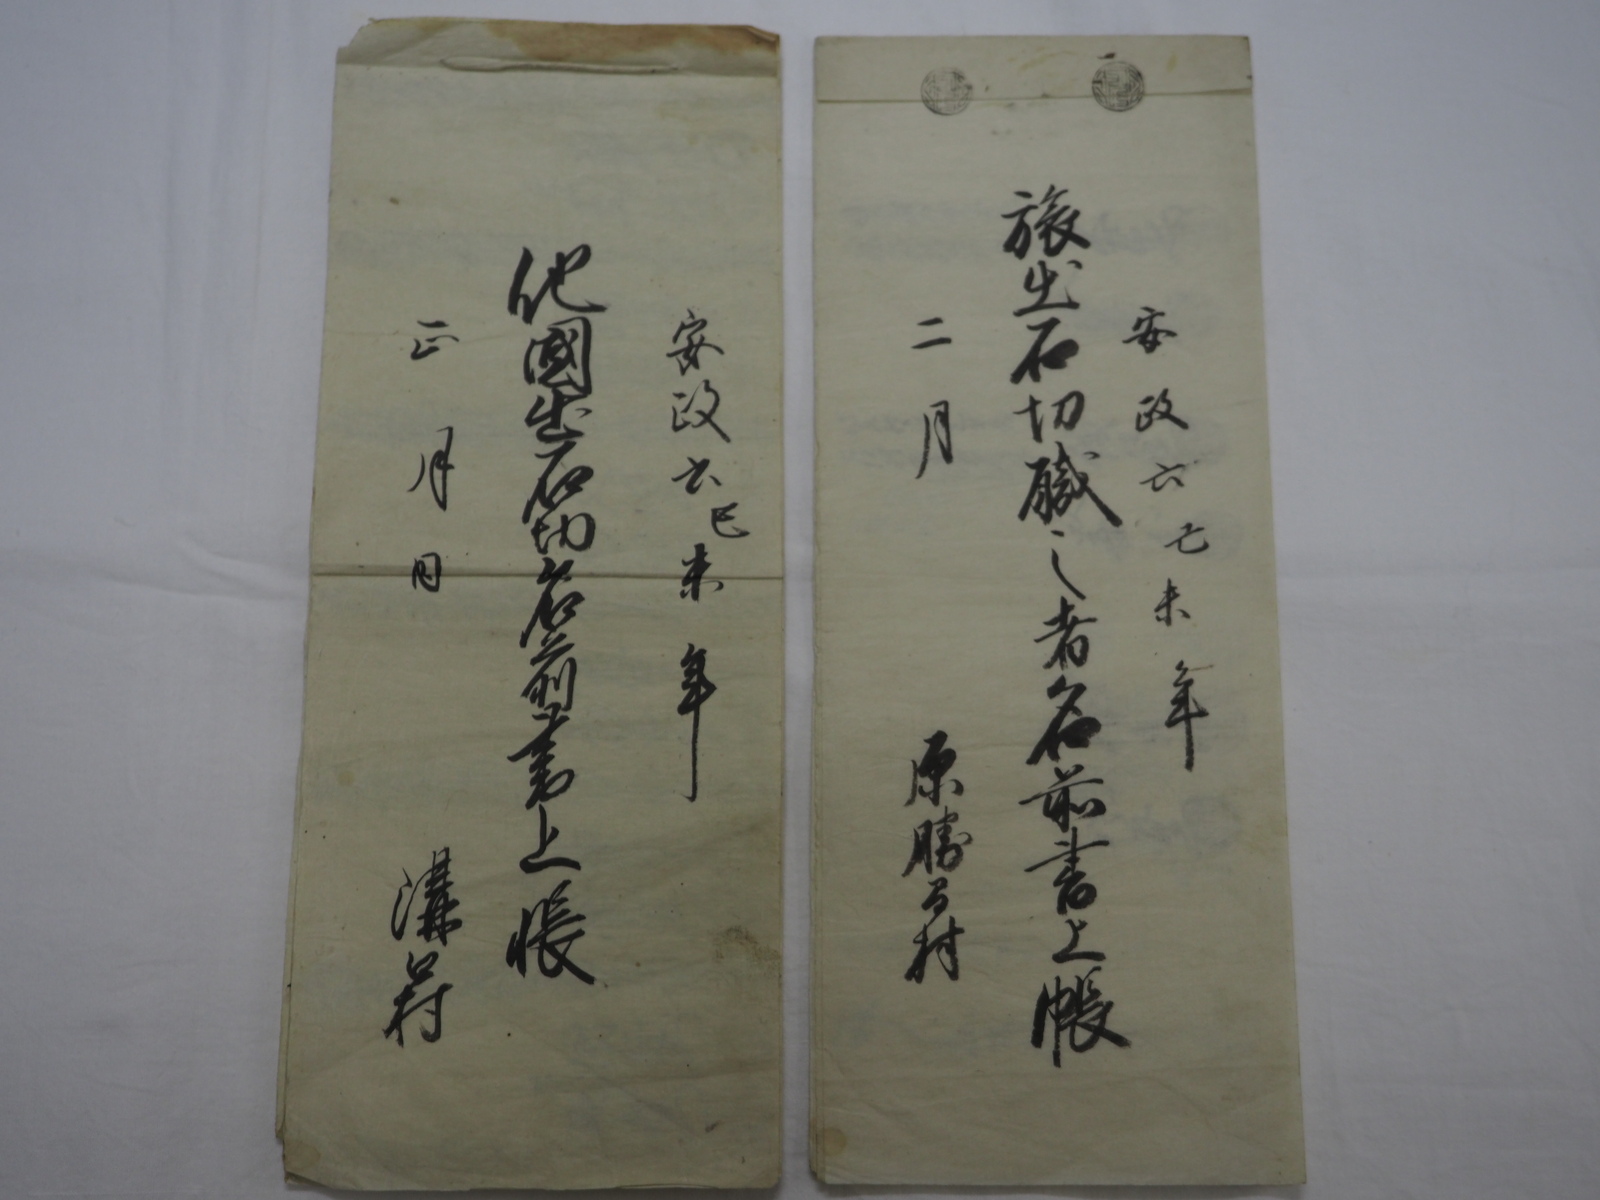 安政六己未年
旅出石切職之者名前書上帳
二月
原勝間村
安政六己未年
他國出石切名前書上帳
正月日
溝口村